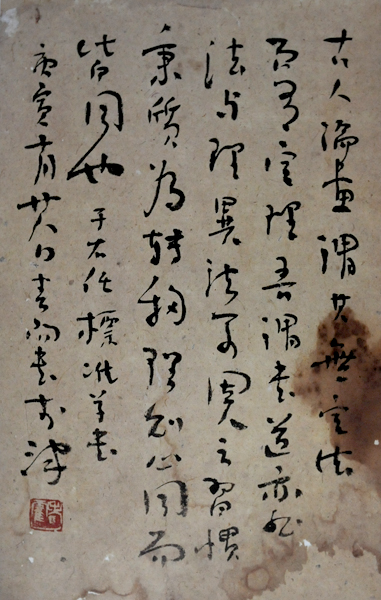 古人論畫謂其無定法
而有定理吾謂書道亦然
法与理異法 之習慣
秉質為轉移理則心同而
皆同也于右任標準草書
庚寅 廿八日 書於津